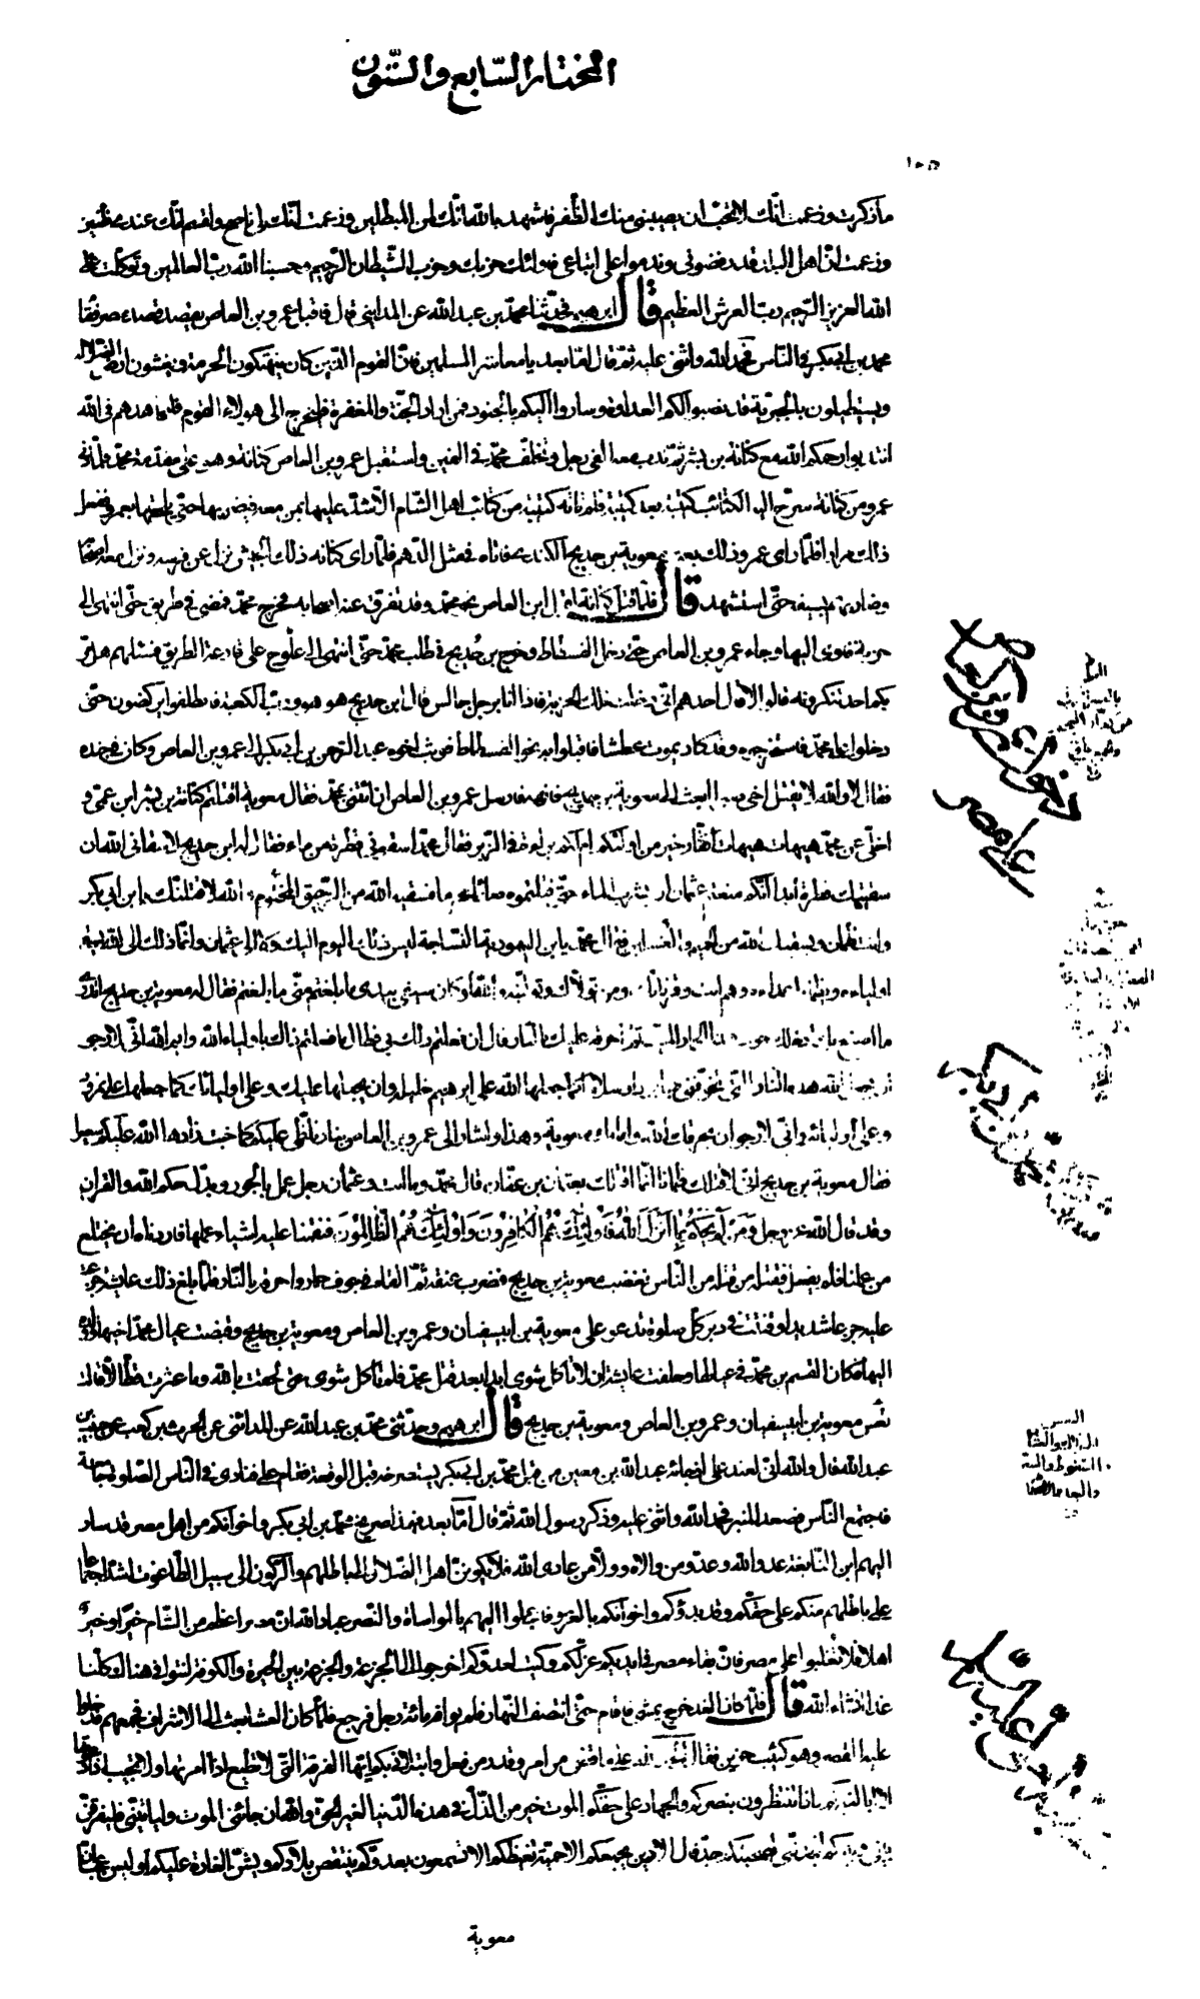 المختار السّابع والستّون
١٠٥
ما ذكرت وزعمت انّك لا تحبّ ان يصيبنى منك الظّفر فاشهد بالله انّك لمن المبطلين وزعمت انّك لى ناصح واقسم انّك عندى ظنين
وزعمت انّ اهل البلد قد رفضونى وندموا على اتباعى فاولئك حزبك وحزب الشّيطان الرّجيم حسبنا الله ربّ العالمين وتوكّلت على
الله العزيز الرّحيم ربّ العرش العظيم قال ابرهيم فحدّثنا محمّد بن عبد الله عن المداينى قال فاقبل عمرو بن العاص يقصد قصد مصر فقام
محمد بن ابى بكر فى النّاس فحمد الله واثنى عليه ثمّ قال امّا بعد يا معاشر المسلمين فانّ القوم الذّين كان ينتهكون الحرمة ويغشون ارض الضّلالة
ويستطيلون بالجبريّة قد نصبوا لكم العداوة وساروا اليكم بالجنود فمن اراد الجنّة والمغفرة فليخرج الى هولاء القوم فليجاهدهم فى الله
انتدبوا رحمكم الله مع كنانة بن بشر ثمّ ندب معه الفى رجل وتخلّف محمّد فى الفين واستقبل عمرو بن العاص كنانة وهو على مقدّمة محمّد فلمّا دنى
عمرو من كنانة سرّح اليه الكتائب كتيبة بعد كتيبة فلم تاته كتيبة من كتائب اهل الشّام الّا شدّ عليها بمن معه فيضربها حتّى يلحقها بعمرو ففعل
ذلك مرارا فلمّا راى عمرو ذلك بعث الى معوية بن حديج الكندى فاتاه فى مثل الدّهم فلمّا راى كنانه ذلك الجيش نزل عن فرسه ونزل معه اصحابه
وضاربهم بسيفه حتّى استشهد قال فلمّا قتل كنانة اقبل ابن العاص نحو محمّد وقد تفرّق عنه اصحابه فخرج محمّد فمضى فى طريقه حتّى انتهى الى
خربة فاوى اليها وجاء عمرو بن العاص حتّى دخل الفسطاط وخرج بن حديج فى طلب محمّد حتّى انتهى الى علوج على قارعة الطريق فسئلهم هل مرّ
بكم احد تنكرونه قالوا لا قال احدهم انّى دخلت تلك الخربة فاذا انا برجل جالس قال ابن حديج هو هو وربّ الكعبة فانطلقوا يركضون حتّى
دخلوا على محمّد فاستخرجوه وقد كاد يموت عطشا فاقبلوا به نحو الفسطاط فوثب اخوه عبد الرّحمن بن ابى بكر الى عمرو بن العاص وكان فى جنده
فقال لا والله لا يقتل اخى صبرا ابعث الى معوية بن حديج فانهه فارسل عمرو بن العاص ان ائتنى بمحمّد فقال معوية اقتلتم كنانة بن بشر ابن عمّى و
اخلّى عن محمّد هيهات هيهات اكفّاركم خير من اولئكم ام لكم براءة فى الزّبر فقال محمّد اسقونى قطرة من ماء فقال له ابن حديج لا سقانى الله ان
سقيتك قطرة ابدا انّكم منعتم عثمان ان يشرب الماء حتّى قتلتموه صائما فسقيه الله من الرّحيق المختوم والله لاقتلنّك يا بن ابى بكر
وانت ظمان ويسقيك الله من الحميم والغسلين فقال محمّد يا بن اليهوديّة النّساجة ليس ذلك اليوم اليك ولا الى عثمان وانّما ذلك الى الله يسقى
اولياءه ويظمئ اعداءه وهم انت وقرناؤك ومن تولّاك والله لو كان سيفى بيدى ما بلغتم منّى ما بلغتم فقال له معوية بن حديج اتدرى
ما اصنع بك ادخلك جوف هذا الحمار الميّت ثمّ احرقه عليك بالنّار قال ان فعلتم ذلك بى فطال ما فعلتم ذلك باولياء الله وايم الله انّى لارجو
ان يجعل الله هذه النّار الّتى تخوّفنى بها بردا وسلاما كما جعلها الله على ابرهيم خليله وان يجعلها عليك وعلى اوليائك كما جعلها على نمرود
وعلى اوليائه وانّى لارجوان يحرقك الله وامامك معوية وهذا واشار الى عمرو بن العاص بنار تلظّى عليكم كلّما خبت زادها الله عليكم سعيرا
فقال معوية بن حديج انّى لا اقتلك ظلما انّما اقتلك بعثمان بن عفّان قال محمّد وما انت وعثمان رجل عمل بالجور وبدّل حكم الله والقران
وقد قال الله عزّ وجل وَمَنْ لَمْ يَحْكُمْ بِما اَنْزَلَ اللّٰهُ فَاُولٰئِكَ هُمُ الْكافِرُونَ وَاُولٰئِكَ هُمُ الظّالِمُونَ فنقمنا عليه اشياء عملها فاردناه ان يختلع
من عملنا فلم يفعل فقتله من قتله من النّاس فغضب معوية بن حديج فضرب عنقه ثمّ القاه فى جوف حمار واحرقه بالنّار فلمّا بلغ ذلك عايشة جزعت
عليه جزعا شديدا وقنتت فى دبر كلّ صلوة تدعو على معوية بن ابيسفيان وعمرو بن العاص ومعوية بن حديج وقبضت عيال محمّد اخيها وولده
اليها فكان القسم بن محمّد فى عيالها وحلفت عايشة ان لا تاكل شوى ابدا بعد قتل محمّد فلم تاكل شوى حتّى لحقت بالله وما عثرت قطّ الّا قالت
تعس معوية بن ابيسفيان وعمرو بن العاص ومعوية بن حديج قال ابرهيم وحدّثنى محمّد بن عبد الله عن المداينى عن الحرث بن كعب عن جندب بن
عبد الله قال والله انّى لعند علىّ اذ جائه عبد الله بن معين من قبل محمّد بن ابى بكر يستصرخه قبل الوقعة فقام علىّ فنادى فى النّاس الصّلوة جامعة
فاجتمع النّاس فصعد المنبر فحمد الله واثنى عليه وذكر رسول الله ثمّ قال امّا بعد فهذا صريخ محمّد بن ابى بكر واخوانكم من اهل مصر قد سار
اليهم ابن النّابغة عدو الله وعدوّ من والاه وولىّ من عادى الله فلا يكوننّ اهل الضّلال الى باطلهم والرّكون الى سبيل الطّاغوت اشدّ اجتماعا
على باطلهم منكم على حقّكم وقد بدؤكم واخوانكم بالغزو فاعجلوا اليهم بالمواساة والنّصر عباد الله انّ مصر اعظم من الشّام خيرا وخير
اهلا فلا تغلبوا على مصر فانّ بقاء مصر فى ايديكم عزّ لكم وكبت لعدوّكم اخرجوا الى الجزعة والجزعة بين الحيرة والكوفة لنتوافى هنالك كلّنا
غدا انشاء الله قال فلمّا كان الغد خرج يمشى فاقام حتّى انتصف النّهار فلم يوافه مائة رجل فرجع فلمّا كان العشىّ بعث الى الاشراف فجمعهم فدخلوا
عليه القصر وهو كئيب حزين فقال الحمد لله على ما قضى من امر وقدّر من فعل وابتلانى بكم ايّتها الفرقة الّتى لا تطيع اذا امرتها ولا تجيب اذا دعوتها
لا ابا لغيركم ماذا تنتظرون بنصركم والجهاد على حقّكم الموت خير من الذّلّ فى هذه الدّنيا لغير الحقّ والله ان جائنى الموت ولياتينّى ليفرّقنّ
بينى وبينكم لتجدنّنى لصحبتكم جدّ قال الا دين يجمعكم الا حميّة تغيظكم الا تسمعون بعدوّكم ينتقص بلادكم ويشنّ الغارة عليكم اوليس عجبا انّ
معوية
دخول عمرو بن العاص
على مصر